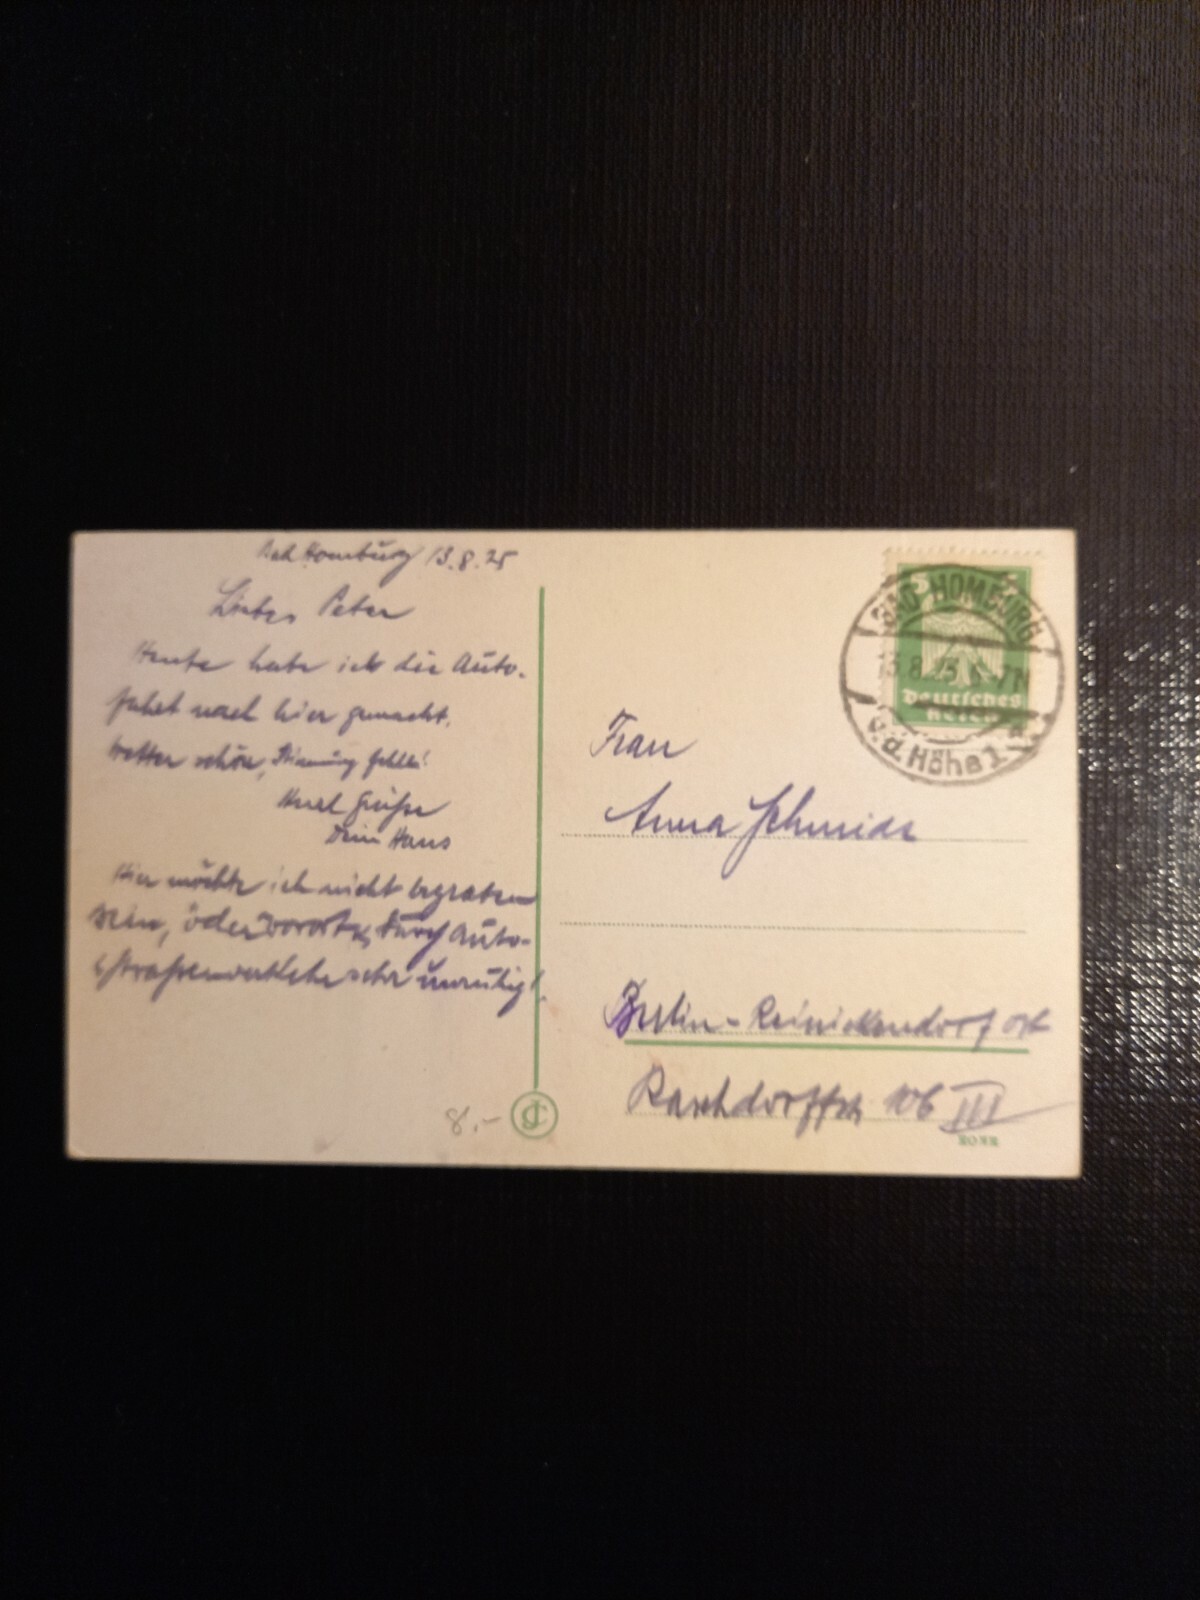 Bad Homburg 13.8.25
Liebes Peter
Heute habe ich die Auto-
fahrt nach hier gemacht.
Wetter schön, Stimmung fehlt!
Grüße
Dein Hans
Hier möchte ich nicht begraben
sein, öder durch Auto-
straßenverkehr sehr unruhig!
8.-
Frau
Anna Schmidt
Berlin-Reinickendorf Ost
106 III
5
BAD HOMBURG
13.8.25 N
v.d. Höhe 1
Deutsches
Reich